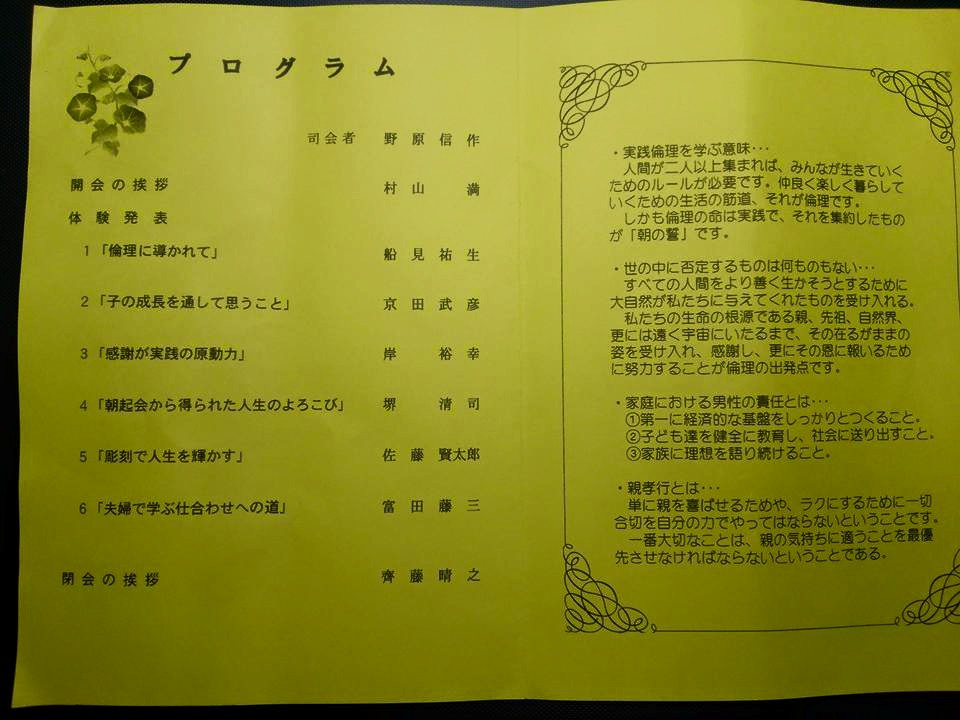 プログラム
司会者 野原信作
開会の挨拶 村山 満
体験発表
1「倫理に導かれて」 船見祐生
2「子の成長を通して思うこと」 京田武彦
3「感謝が実践の原動力」 岸 裕幸
4「朝起会から得られた人生のよろこび」 堺 清司
5「彫刻で人生を輝かす」 佐藤賢太郎
6「夫婦で学ぶ仕合わせへの道」 富田藤三
閉会の挨拶 齊藤晴之
・実践倫理を学ぶ意味・・・
人間が二人以上集まれば、みんなが生きていく
ためのルールが必要です。仲良く楽しく暮らして
いくための生活の筋道、それが倫理です。
しかも倫理の命は実践で、それを集約したもの
が「朝の誓」です。
・世の中に否定するものは何ものもない・・・
すべての人間をより善く生かそうとするために
大自然が私たちに与えてくれたものを受け入れる。
私たちの生命の根源である親、先祖、自然界、
更には遠く宇宙にいたるまで、その在るがままの
姿を受け入れ、感謝し、更にその恩に報いるため
に努力することが倫理の出発点です。
・家庭における男性の責任とは・・・
①第一に経済的な基盤をしっかりとつくること。
②子ども達を健全に教育し、社会に送り出すこと。
③家族に理想を語り続けること。
・親孝行とは・・・
単に親を喜ばせるためや、ラクにするために一切
合切を自分の力でやってはならないということです。
一番大切なことは、親の気持ちに適うことを最優
先させなければならないということである。